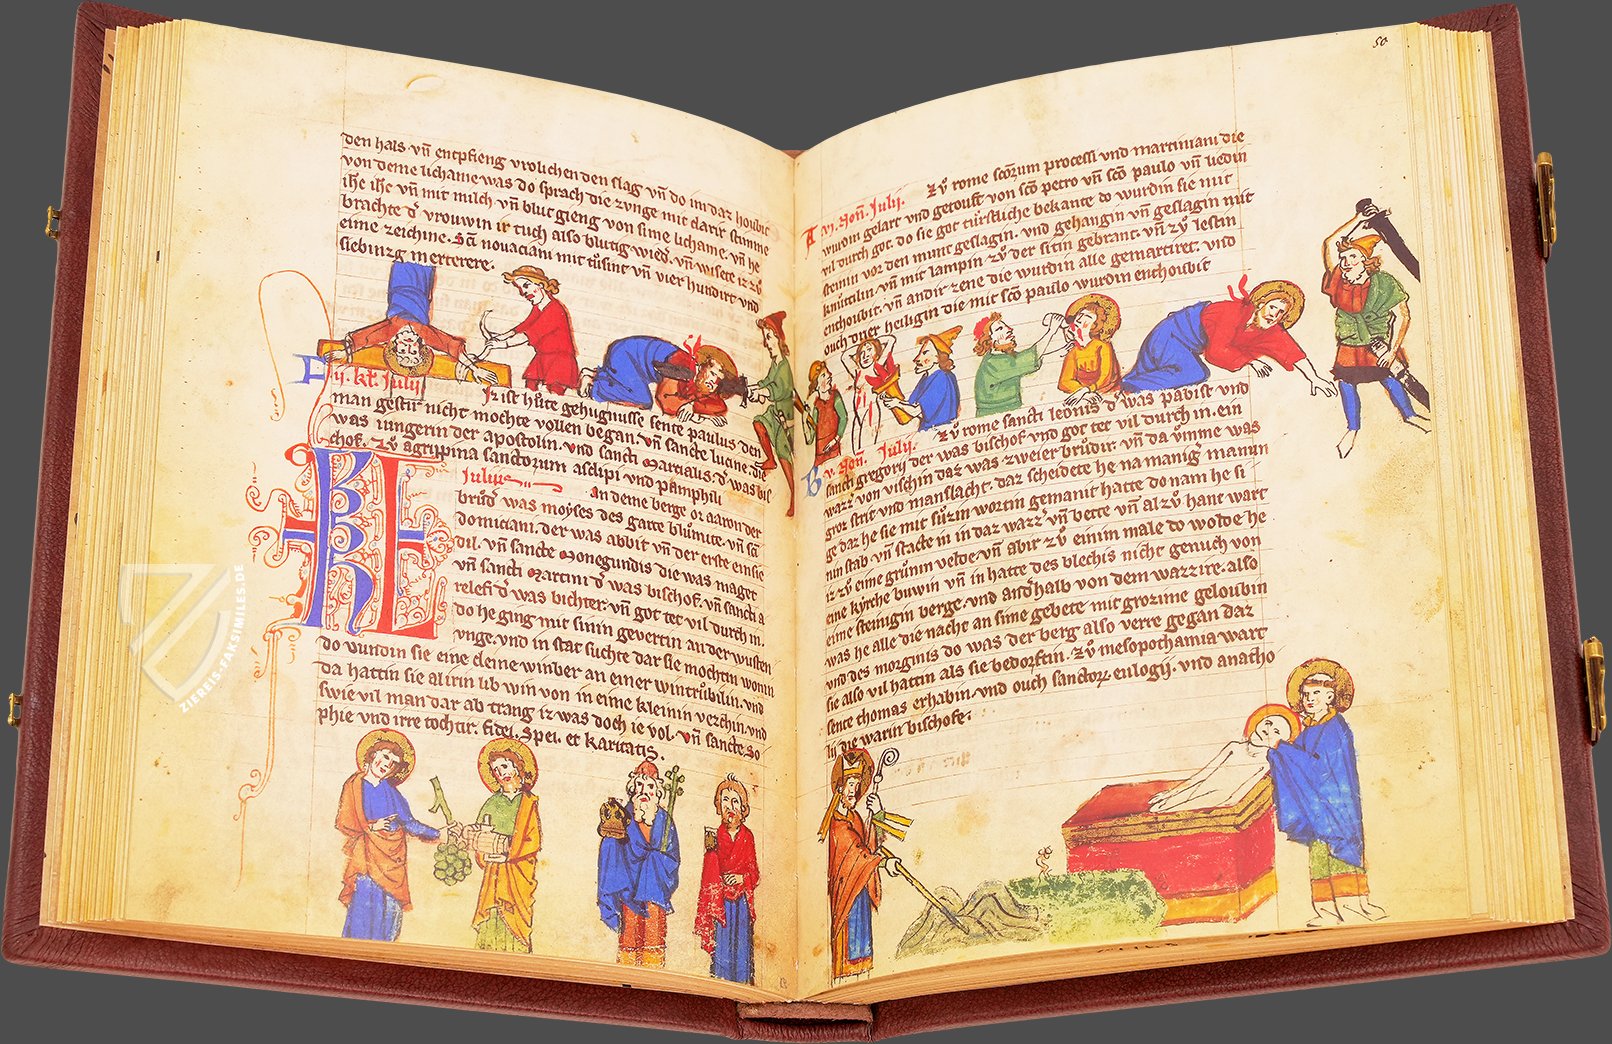 den hals. vn̄ entpfieng vrolichen den slag vn̄ do im daz houbit
von deme lichame was do sprach die zvnge mit clarir stimme
ihc ihc vn̄ mit milch vn̄ blut gieng von sime lichame. vn̄ he
brachte d' vrouwin ir tuch also blutig wied. vn̄ wisete ir zv̊
eine zeichine. Scī nouaciani mit tusint vn̄ vier hundirt vnd
siebinzg merterere.
ij. kł. Julij
Iz ist hůte gehugnisse sente paulus den
man gestir nicht mochte vollen began. vn̄ sancte lucine. die
was iungerin der apostolin. vnd sancti Marcialis. d' was bis
chof. Zv̊ agrippina sanctorum asclipi vnd pamphili
KL
Julius
An deme berge or aaron der
brůd' was moyses des garte blůmite. vn̄ scī
domiciani. der was abbit vn̄ der erste einsie
dil. vn̄ sancte Monegundis die was maget
vn̄ sancti Martini d' was bischof. vn̄ sancti a
relefi d' was bichter. vn̄ got tet vil durch in.
do he ging mit sinin gevertin an der wusten
vnge. vnd in stat suchte dar sie mochtin wonin
do vundin sie eine cleine winber an einer wintrůbilin. vnd
da hattin sie alir in lib win von in eime kleinin vezchin. vnd
swie vil man dar ab trang iz was doch ie vol. vn̄ sancte. So
phie vnd irre tochtir. fidei. Spei. et Karitatis.
50
Zv̊ rome scōrum processi vnd martiniani die
A vi. Non. Julij.
wurdin gelart vnd getouft von scō petro vn̄ scō paulo vn̄ liedin
vil durch got. do sie got túrstliche bekante do wurdin sie mit
steinin vor den munt geslagin. vnd gehangin vn̄ geslagin mit
knúttilin. vn̄ mit lampin zv̊ der sitin gebrant. vn̄ zv̊ lestin
enthoubit. vn̄ andir zene die wurdin alle gemartiret. vnd
ouch drier heiligin die mit scō paulo wurdin enthoubit
Zv̊ rome sancti leonis d' was pabist vnd
B v. Non. Julij.
sancti gregorij der was bischof vnd got tet vil durch in. ein
wazz' von vischin daz was zweier brůdir. vn̄ da vmme was
groz strit vnd manslacht. daz scheidete he na manig' manun
ge daz he sie mit sůzin wortin gemanit hatte do nam he si
nin stab vn̄ stacte in in daz wazz' vn̄ bette vn̄ al zv̊ hant wart
iz zv̊ eime grůnin velde. vn̄ abir zv̊ einim male do wolde he
eine kyrche buwin vn̄ in hatte des blechis nicht genuch von
eime steinigin berge. vnd andirhalb von dem wazzire. also
was he alle die nacht an sime gebete mit grozime geloubin
vnd des morginis do was der berg also verre gegan daz
sie also vil hattin als sie bedorftin. Zv̊ mesopothamia wart
sente thomas erhabin. vnd ouch sanctorz eulogij. vnd anacho
lij die warin bischofe.
ZIEREIS-FAKSIMILES.DE